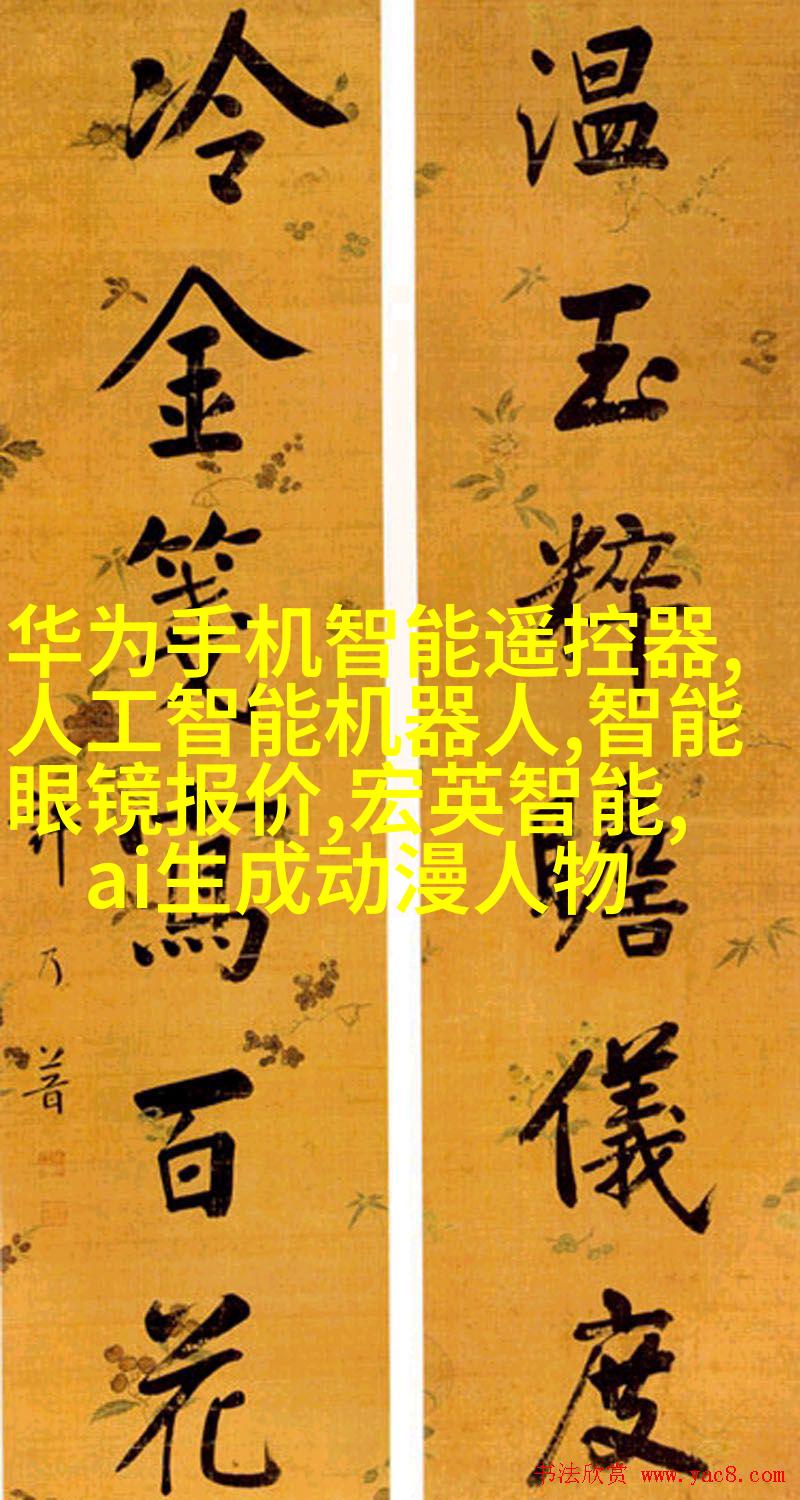 温玉粹瞻儀度
冷金箋寫百花
乃普
华为手机智能遥控器,
人工智能机器人,智能
眼镜报价,宏英智能,
ai生成动漫人物
书法欣赏 www.yac8.com